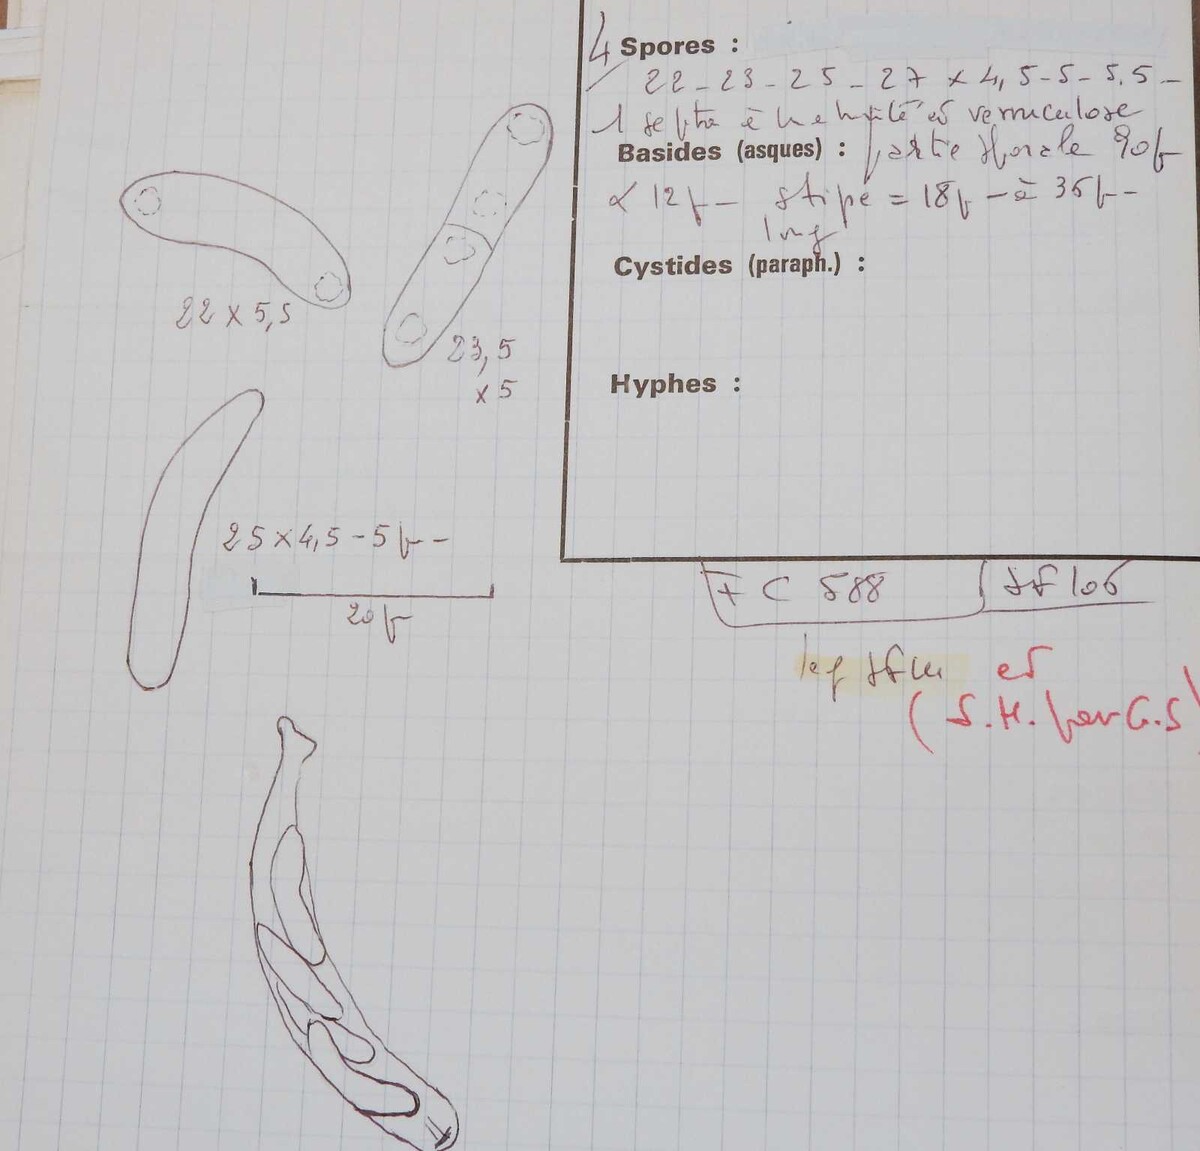 4 Spores :
22 - 23 - 25 - 27 x 4,5 - 5 - 5,5 -
1 septa à maturité et verruculose
Basides (asques) : partie sporale 90µ
x 12µ - stipe = 18µ - à 36µ -
long
Cystides (paraph.) :
22 x 5,5
23,5
x 5
Hyphes :
25 x 4,5 - 5 µ -
20µ
FC 588
leg et
(S.H. par G.S)